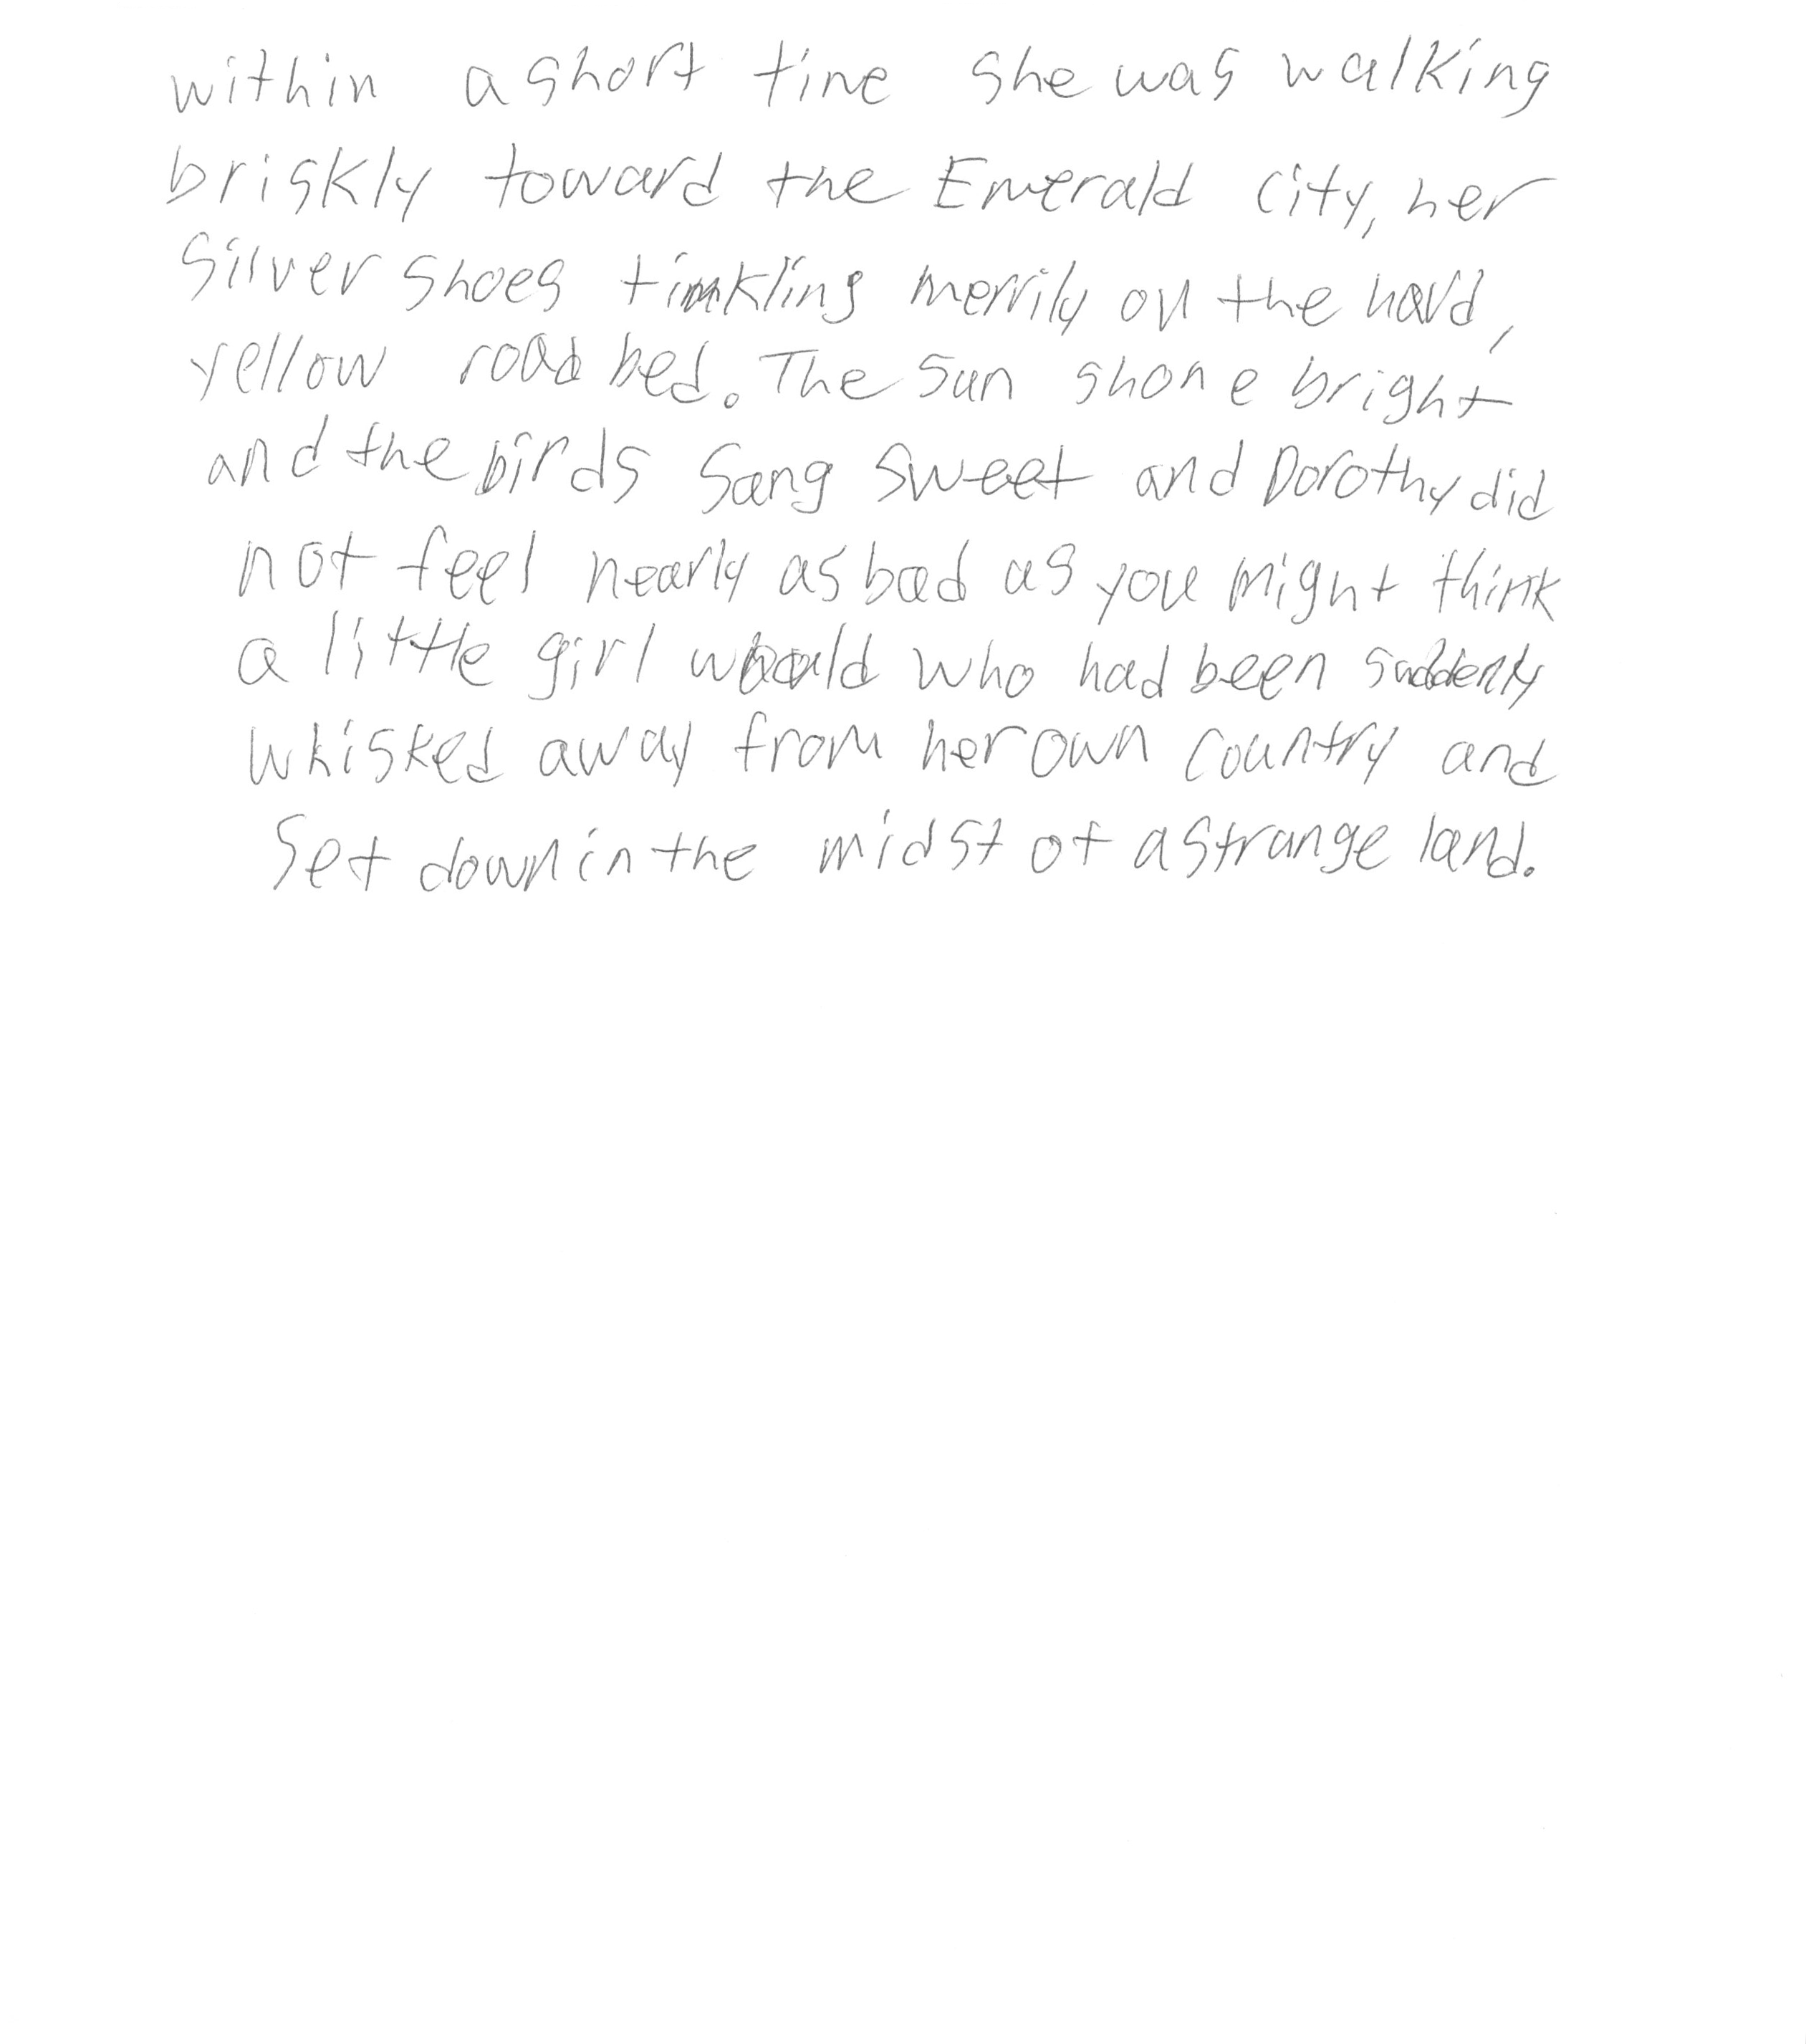 within a short time she was walking
briskly toward the Emerald city, her
Silver shoes tinkling merrily on the hard,
yellow road bed. The sun shone bright
and the birds sang sweet and Dorothy did
not feel nearly as bad as you might think
a little girl would who had been suddenly
whisked away from her own country and
set down in the midst of a strange land.